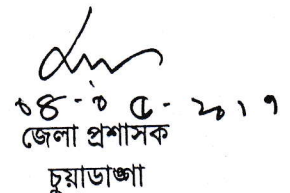 ০৪-০৫-২০১৭
জেলা প্রশাসক
চুয়াডাঙ্গা